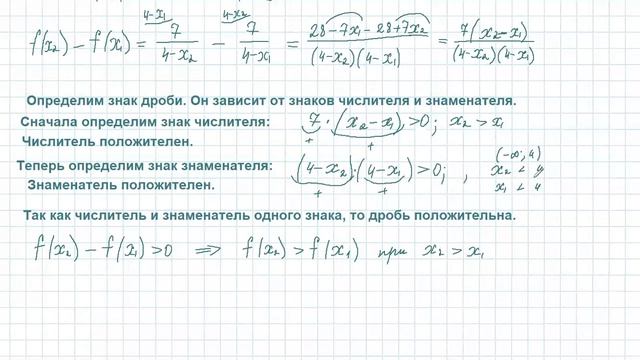 4-x₁ 4-x₂
f(x₂) - f(x₁) = 7/(4-x₂) - 7/(4-x₁) = (28-7x₁-28+7x₂)/((4-x₂)(4-x₁)) = 7(x₂-x₁)/((4-x₂)(4-x₁))
Определим знак дроби. Он зависит от знаков числителя и знаменателя.
Сначала определим знак числителя: 7·(x₂-x₁)>0; x₂>x₁
+ +
Числитель положителен.
(-∞; 4)
Теперь определим знак знаменателя: (4-x₂)·(4-x₁)>0; , x₂<4
+ + x₁<4
Знаменатель положителен.
Так как числитель и знаменатель одного знака, то дробь положительна.
f(x₂)-f(x₁)>0 ⇒ f(x₂)>f(x₁) при x₂>x₁